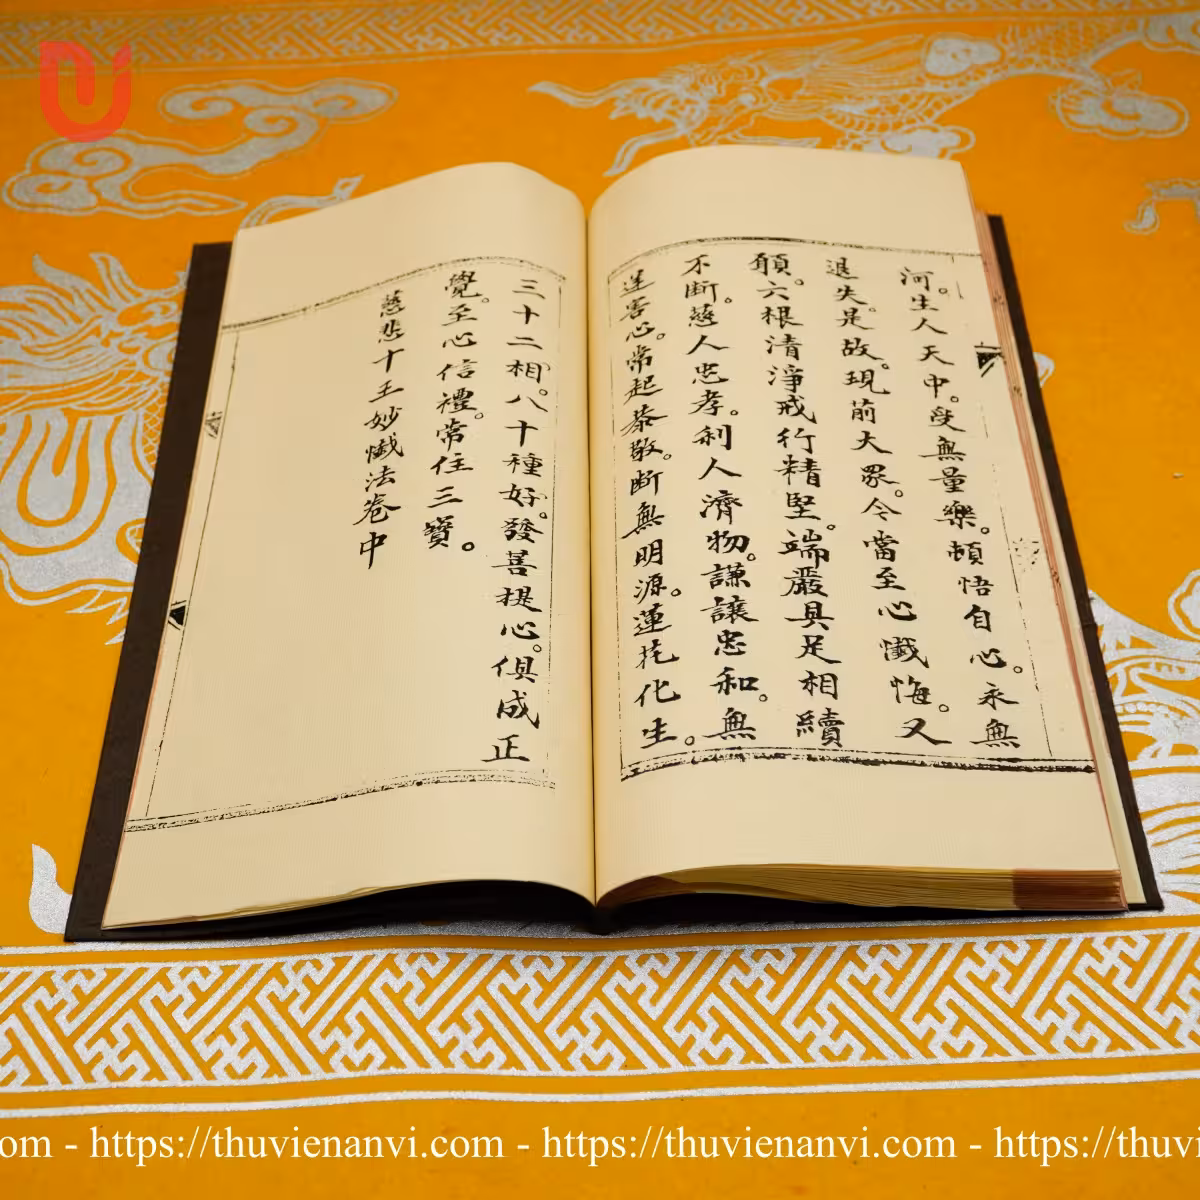 河。生人天中。受無量樂。頓悟自心。永無
退失。是故。現前大眾。今當至心懺悔。又
願。六根清淨戒行精堅。端嚴具足相續
不斷。慈人忠孝。利人濟物。謙讓忠和。無
逆害心。常起恭敬。斷無明源。蓮托化生。
三十二相。八十種好。發菩提心。俱成正
覺。至心信禮。常住三寶。
慈悲十王妙懺法卷中
https://thuvienanvi.com - https://thuvienanvi.com